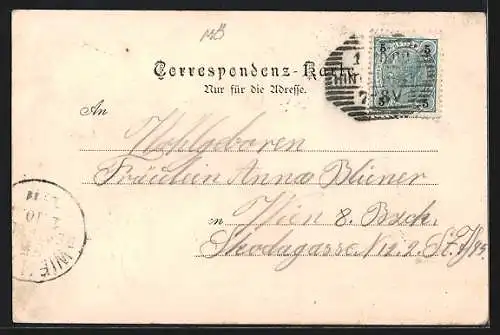 MÖ
Correspondenz-Karte
Nur für die Adresse.
5 5
5 5
An
Wohlgeboren
Fräulein Anna Blüner
in Wien 8. Bzch.
Skodagasse N 12. 2. St.
WIEN